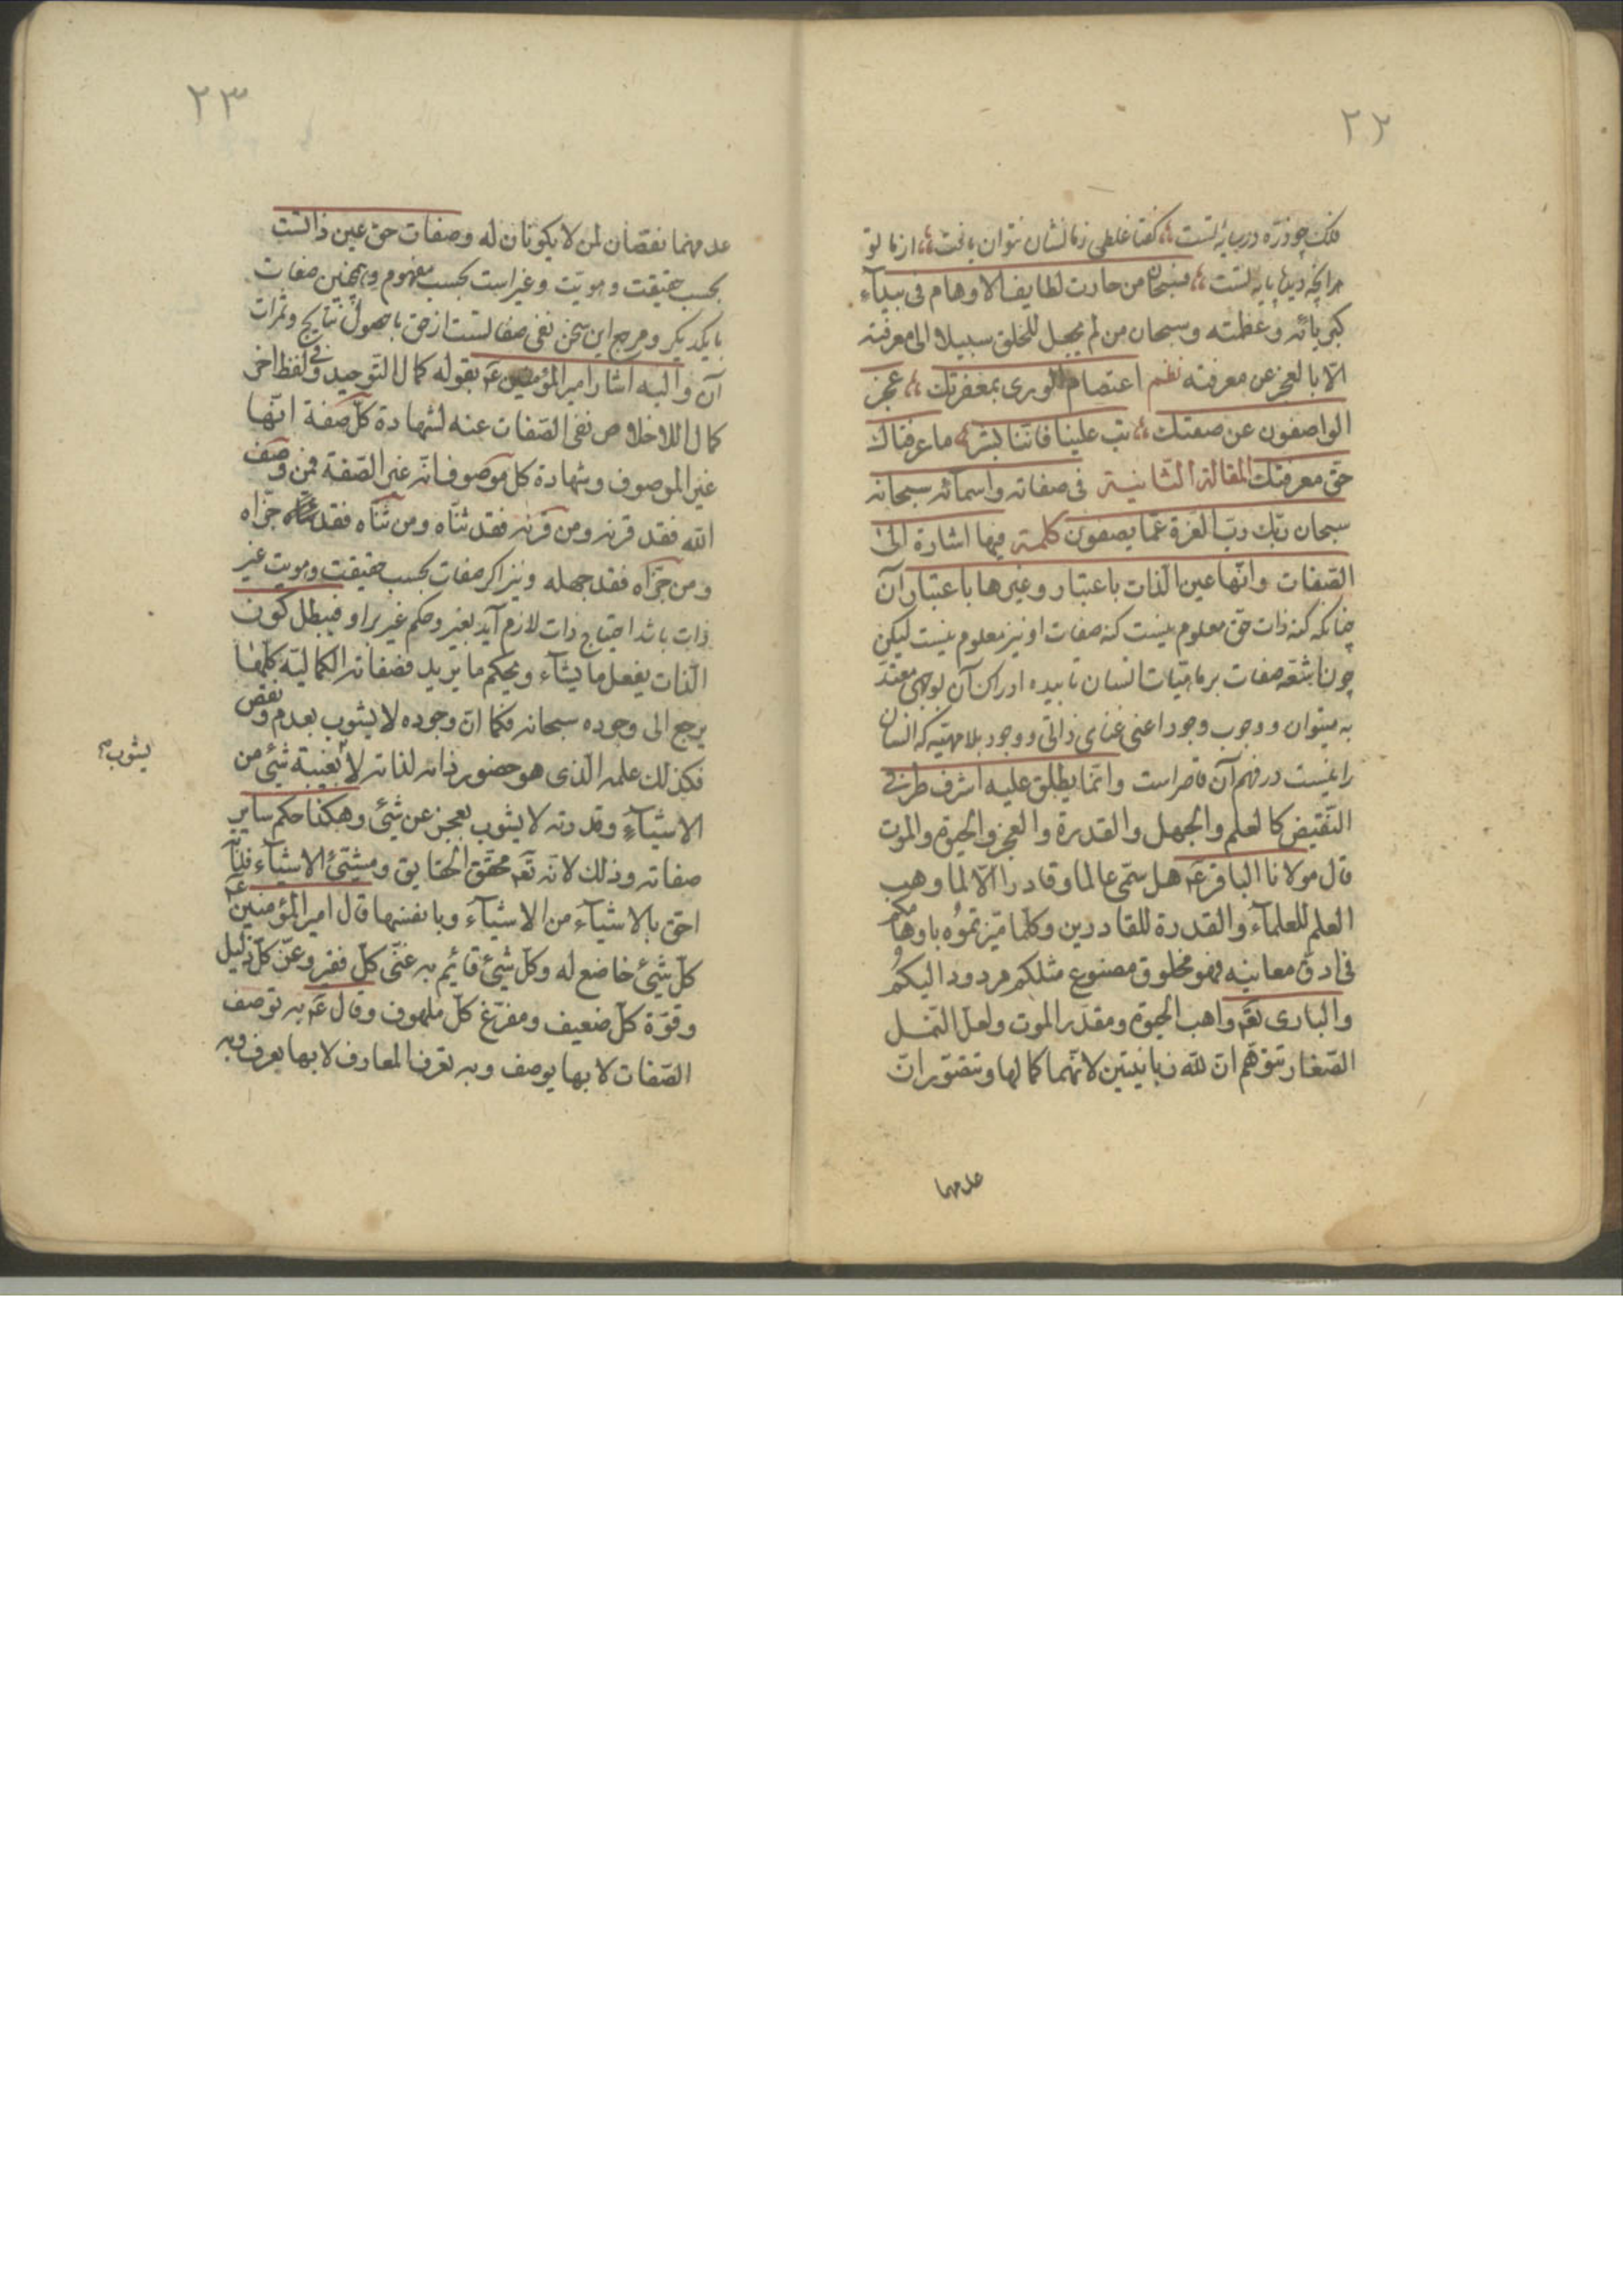 ٢٢
فلک چو ذره در سایهٔ تست گفتا غلطی ز ما نشان نتوان یافت از ما تو
هر آنچه دیدهٔ پایهٔ تست فسبحان من حارت لطایف الاوهام فی بیدآء
کبریائه و عظمته و سبحان من لم یجعل للخلق سبیلا الی معرفته
الّا بالعجز عن معرفته نظم اعتصام الوری بمغفرتک عجز
الواصفون عن صفتک تب علینا فانّنا بشر ما عرفناک
حقّ معرفتک المقالة الثّانیة فی صفاته و اسمائه سبحانه
سبحان ربّک ربّ العزة عمّا یصفون کلمة فیها اشارة الی
الصّفات و انّها عین الذات باعتبار و غیرها باعتبار آن
چنانکه کنه ذات حق معلوم نیست کنه صفات او نیز معلوم نیست لیکن
چون اشعّه صفات بر ماهیّات انسان تابیده ادراک آن بوجهی معتد
به میتوان و وجوب وجود اعنی غنای ذاتی و وجود بلا مهیّه که انسان
را نیست در فهم آن قاصر است و انّما یطلق علیه اشرف طرفی
النّقیض کالعلم و الجهل و القدرة و العجز و الحیوة و الموت
قال مولانا الباقر عم هل سمّی عالما و قادرا الّا لما وهب
العلم للعلمآء و القدرة للقادرین و کلّما میّزتموه باوهامکم
فی ادقّ معانیه فهو مخلوق مصنوع مثلکم مردود الیکم
و الباری تعم واهب الحیوة و مقدّر الموت و لعلّ النّمل
الصّغار تتوهّم انّ للّه زبانیتین لانّهما کمالها و تتصّور انّ
عدمهما
٢٣
عدمهما نقصان لمن لا یکونان له و صفات حق عین ذاتست
بحسب حقیقت و هویّت و غیر است بحسب مفهوم و همچنین صفات
با یکدیگر و مرجع این سخن نفی صفاتست از حق با حصول نتایج و ثمرات
آن و الیه اشار امیر المؤمنین عم بقوله کمال التّوحید و فی لفظ اخر
کمال الاخلاص نفی الصّفات عنه لشهادة کلّ صفة انّها
غیر الموصوف و شهادة کل موصوف انّه غیر الصّفة فمن وصف
اللّه فقد قرنه و من قرنه فقد ثنّاه و من ثنّاه فقد جزّاه
و من جزّاه فقد جهله و نیز اگر صفات بحسب حقیقت و هویت غیر
ذات باشد احتیاج ذات لازم آید بغیر و حکم غیر بر او فیبطل کون
الذات یفعل ما یشآء و یحکم ما یرید فصفاته الکمالیّه کلّها
یرجع الی وجوده سبحانه فکما انّ وجوده لا یشوب بعدم و نقص
فکذلک علمه الّذی هو حضور ذاته لذاته لا بغیبة شئ من
یشوب
الاشیآء و قدرته لا یشوب بعجز عن شئ و هکذا حکم سایر
صفاته و ذلک لانّه تعم محقّق الحقایق و مشیّئ الاشیآء فذاته
احقّ بالاشیآء من الاشیآء و بانفسها قال امیر المؤمنین عم
کلّ شئ خاضع له و کلّ شئ قائیم به غنّی کلّ فقیر و عزّ کلّ ذلیل
و قوّة کلّ ضعیف و مفزّغ کلّ ملهوف و قال عم به توصف
الصّفات لا بها یوصف و به تعرف المعارف لا بها یعرف و به